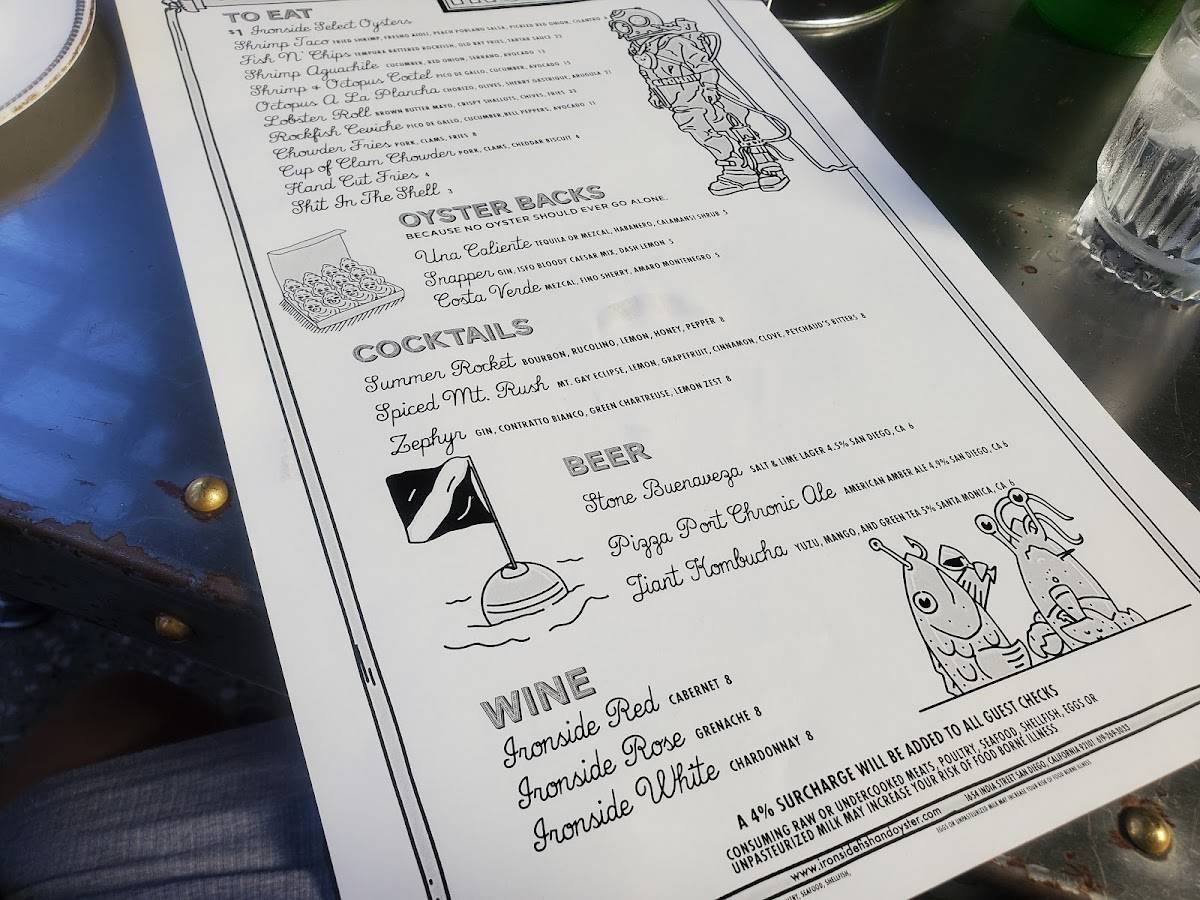 TO EAT
$1 Ironside Select Oysters
Shrimp Taco FRIED SHRIMP, FRESNO AIOLI, PEACH POBLANO SALSA, PICKLED RED ONION, CILANTRO
Fish N' Chips TEMPURA BATTERED ROCKFISH, OLD BAY FRIES, TARTAR SAUCE 22
Shrimp Aguachile CUCUMBER, RED ONION, SERRANO, AVOCADO 13
Shrimp + Octopus Coctel PICO DE GALLO, CUCUMBER, AVOCADO 15
Octopus A La Plancha CHORIZO, OLIVES, SHERRY GASTRIQUE, ARUGULA 21
Lobster Roll BROWN BUTTER MAYO, CRISPY SHALLOTS, CHIVES, FRIES 25
Rockfish Ceviche PICO DE GALLO, CUCUMBER, BELL PEPPERS, AVOCADO 11
Chowder Fries PORK, CLAMS, FRIES 8
Cup of Clam Chowder PORK, CLAMS, CHEDDAR BISCUIT 6
Hand Cut Fries 4
Shit In The Shell 3
OYSTER BACKS
BECAUSE NO OYSTER SHOULD EVER GO ALONE.
Una Caliente TEQUILA OR MEZCAL, HABANERO, CALAMANSI SHRUB 5
Snapper GIN, ISFO BLOODY CAESAR MIX, DASH LEMON 5
Costa Verde MEZCAL, FINO SHERRY, AMARO MONTENEGRO 5
COCKTAILS
Summer Rocket BOURBON, RUCOLINO, LEMON, HONEY, PEPPER 8
Spiced Mt. Rush MT. GAY ECLIPSE, LEMON, GRAPEFRUIT, CINNAMON, CLOVE, PEYCHAUD'S BITTERS 8
Zephyr GIN, CONTRATTO BIANCO, GREEN CHARTREUSE, LEMON ZEST 8
BEER
Stone Buenaveza SALT & LIME LAGER 4.5% SAN DIEGO, CA 6
Pizza Port Chronic Ale AMERICAN AMBER ALE 4.9% SAN DIEGO, CA 6
Jiant Kombucha YUZU, MANGO, AND GREEN TEA 5% SANTA MONICA, CA 6
WINE
Ironside Red CABERNET 8
Ironside Rose GRENACHE 8
Ironside White CHARDONNAY 8
A 4% SURCHARGE WILL BE ADDED TO ALL GUEST CHECKS
CONSUMING RAW OR UNDERCOOKED MEATS, POULTRY, SEAFOOD, SHELLFISH, EGGS OR
UNPASTEURIZED MILK MAY INCREASE YOUR RISK OF FOOD BORNE ILLNESS
www.ironsidefishandoyster.com 1654 INDIA STREET SAN DIEGO, CALIFORNIA 92101 619-269-3033
EGGS OR UNPASTEURIZED MILK MAY INCREASE YOUR RISK OF FOOD BORNE ILLNESS
SEAFOOD, SHELLFISH,